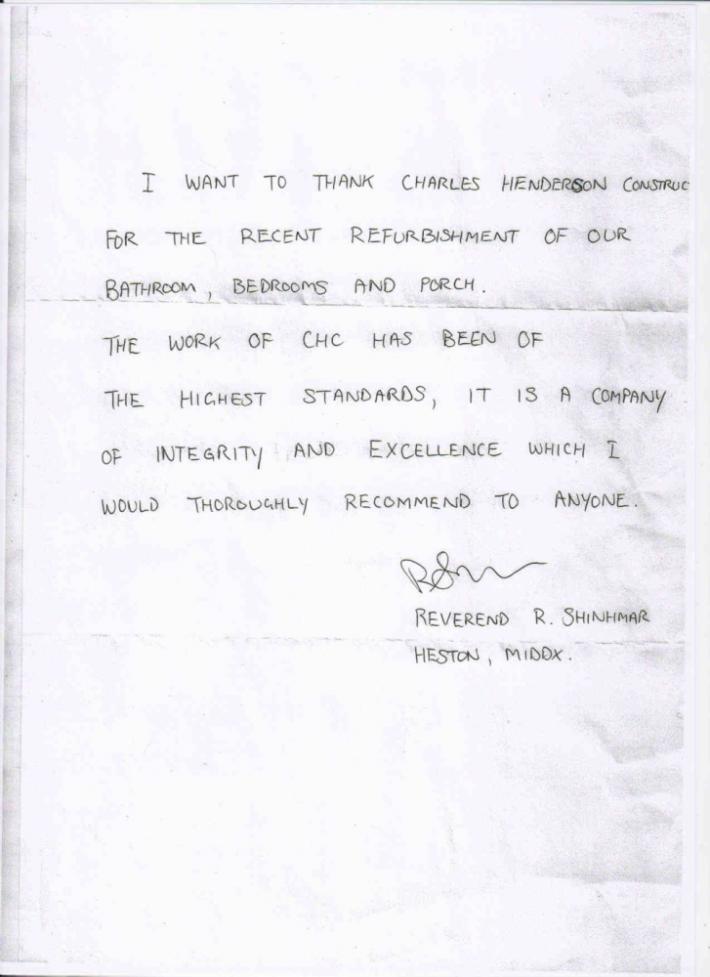 I WANT TO THANK CHARLES HENDERSON CONSTRUC
FOR THE RECENT REFURBISHMENT OF OUR
BATHROOM, BEDROOMS AND PORCH.
THE WORK OF CHC HAS BEEN OF
THE HIGHEST STANDARDS, IT IS A COMPANY
OF INTEGRITY AND EXCELLENCE WHICH I
WOULD THOROUGHLY RECOMMEND TO ANYONE.
REVEREND R. SHINHMAR
HESTON, MIDDX.